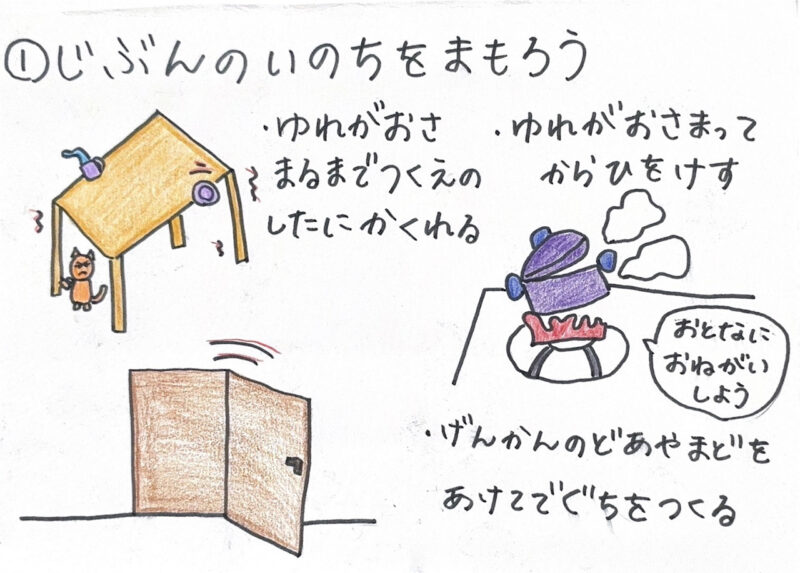 ①じぶんのいのちをまもろう
・ゆれがおさ
まるまでつくえの
したにかくれる
・ゆれがおさまって
からひをけす
おとなに
おねがい
しよう
・げんかんのどあやまどを
あけてでぐちをつくる